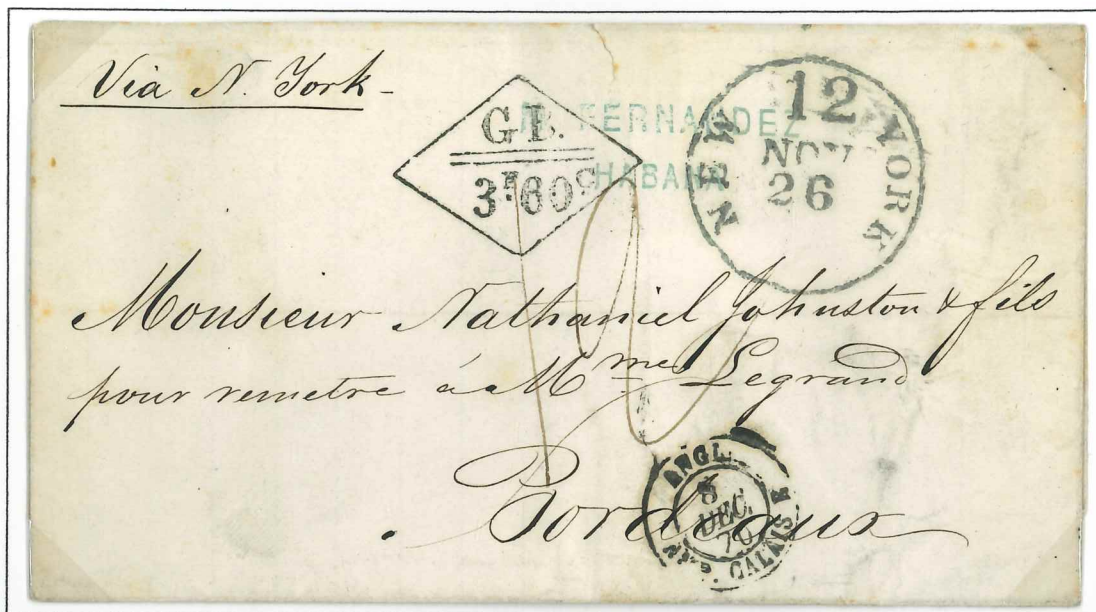 Via N. York -
G B.
3F 60C
FERNANDEZ
HABANA
NEW YORK
12
NOV
26
Monsieur Nathaniel Johnston & fils
pour remetre à Mme Legrand
Bordeaux
ANGL.
DEC.
70
CALAIS